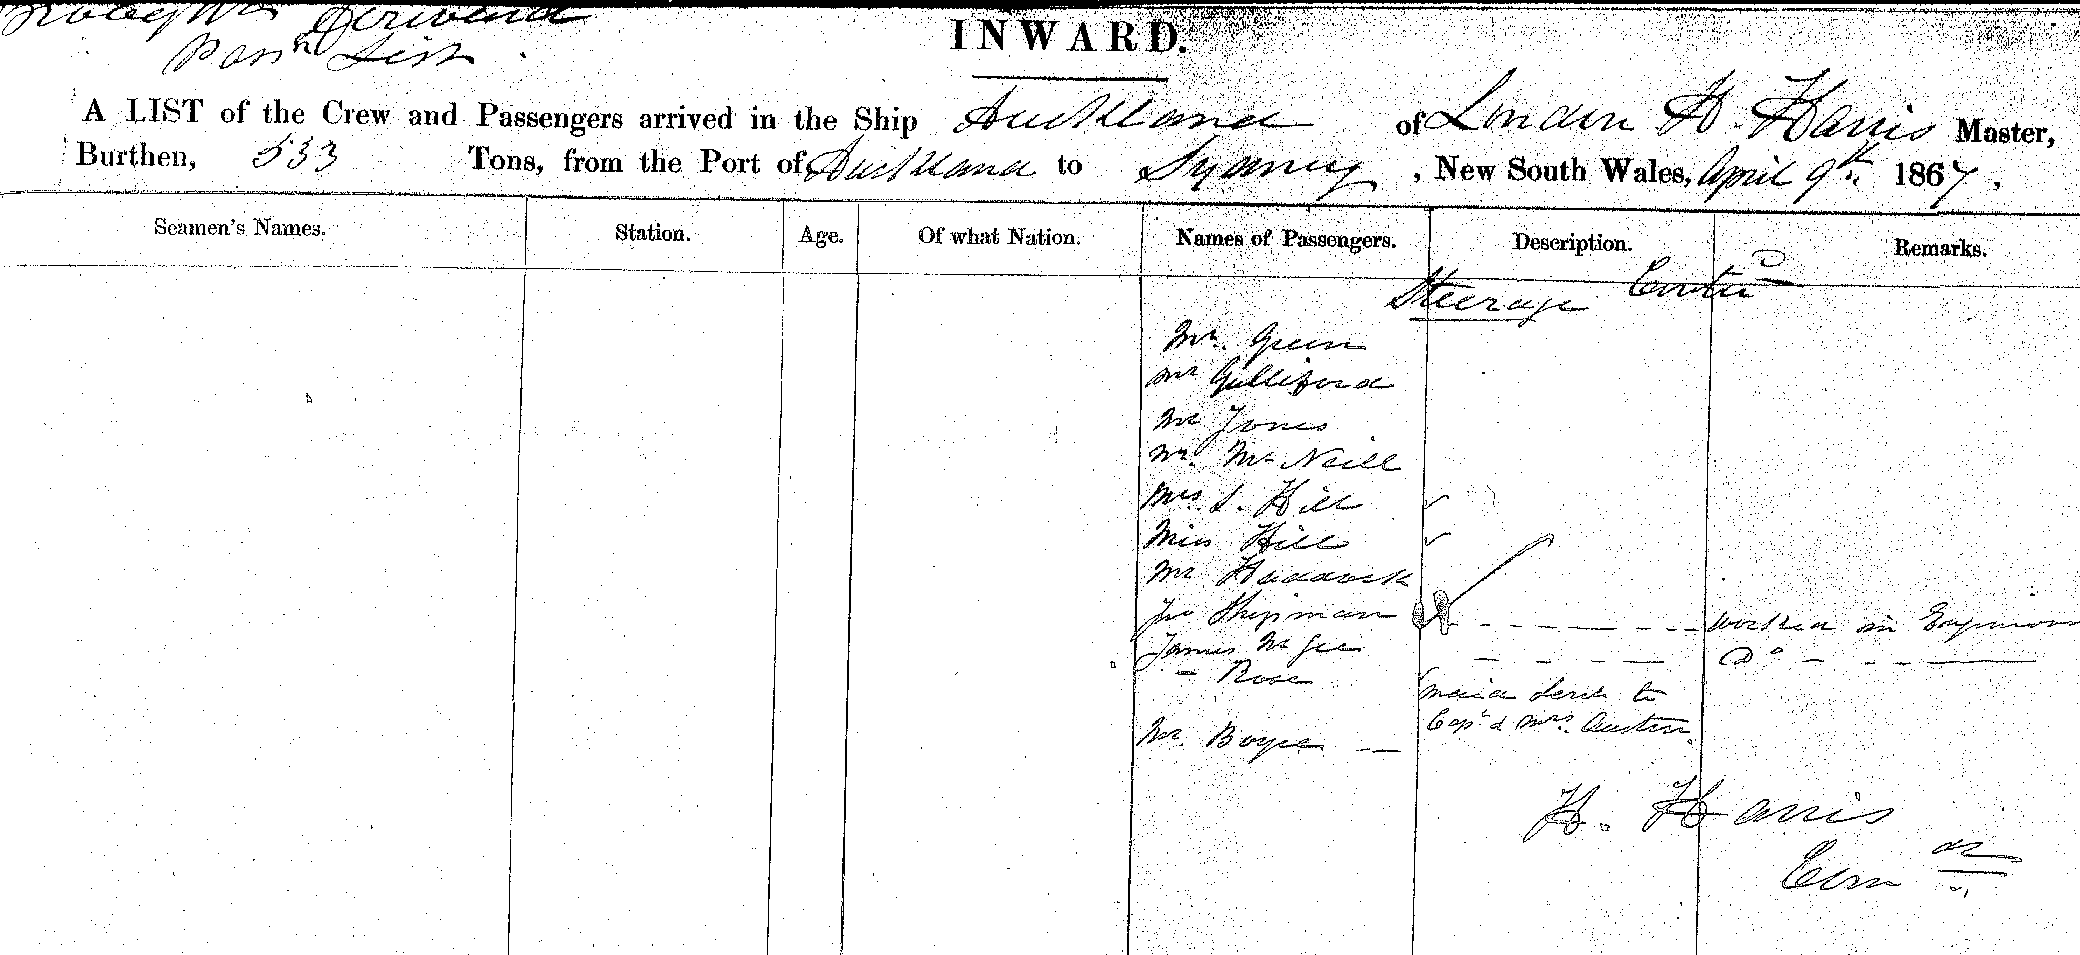 Passr List
INWARD.
A LIST of the Crew and Passengers arrived in the Ship Auckland of London H. Harris Master,
Burthen, 533 Tons, from the Port of Auckland to Sydney, New South Wales, April 9th 1867.
Seamen's Names. Station. Age. Of what Nation. Names of Passengers. Description. Remarks.
Steerage Contd
Mr. Green
Mr Gulliford
Mr Jones
Mr. McNeill
Mrs S. Hill
Miss Hill
Mr Haddock
Jno Shipman worked in Engineroom
James McGee Do
- Rose maid Servt to
Capt & Mrs. Austin.
Mr. Boyce
H. Harris
Comdr